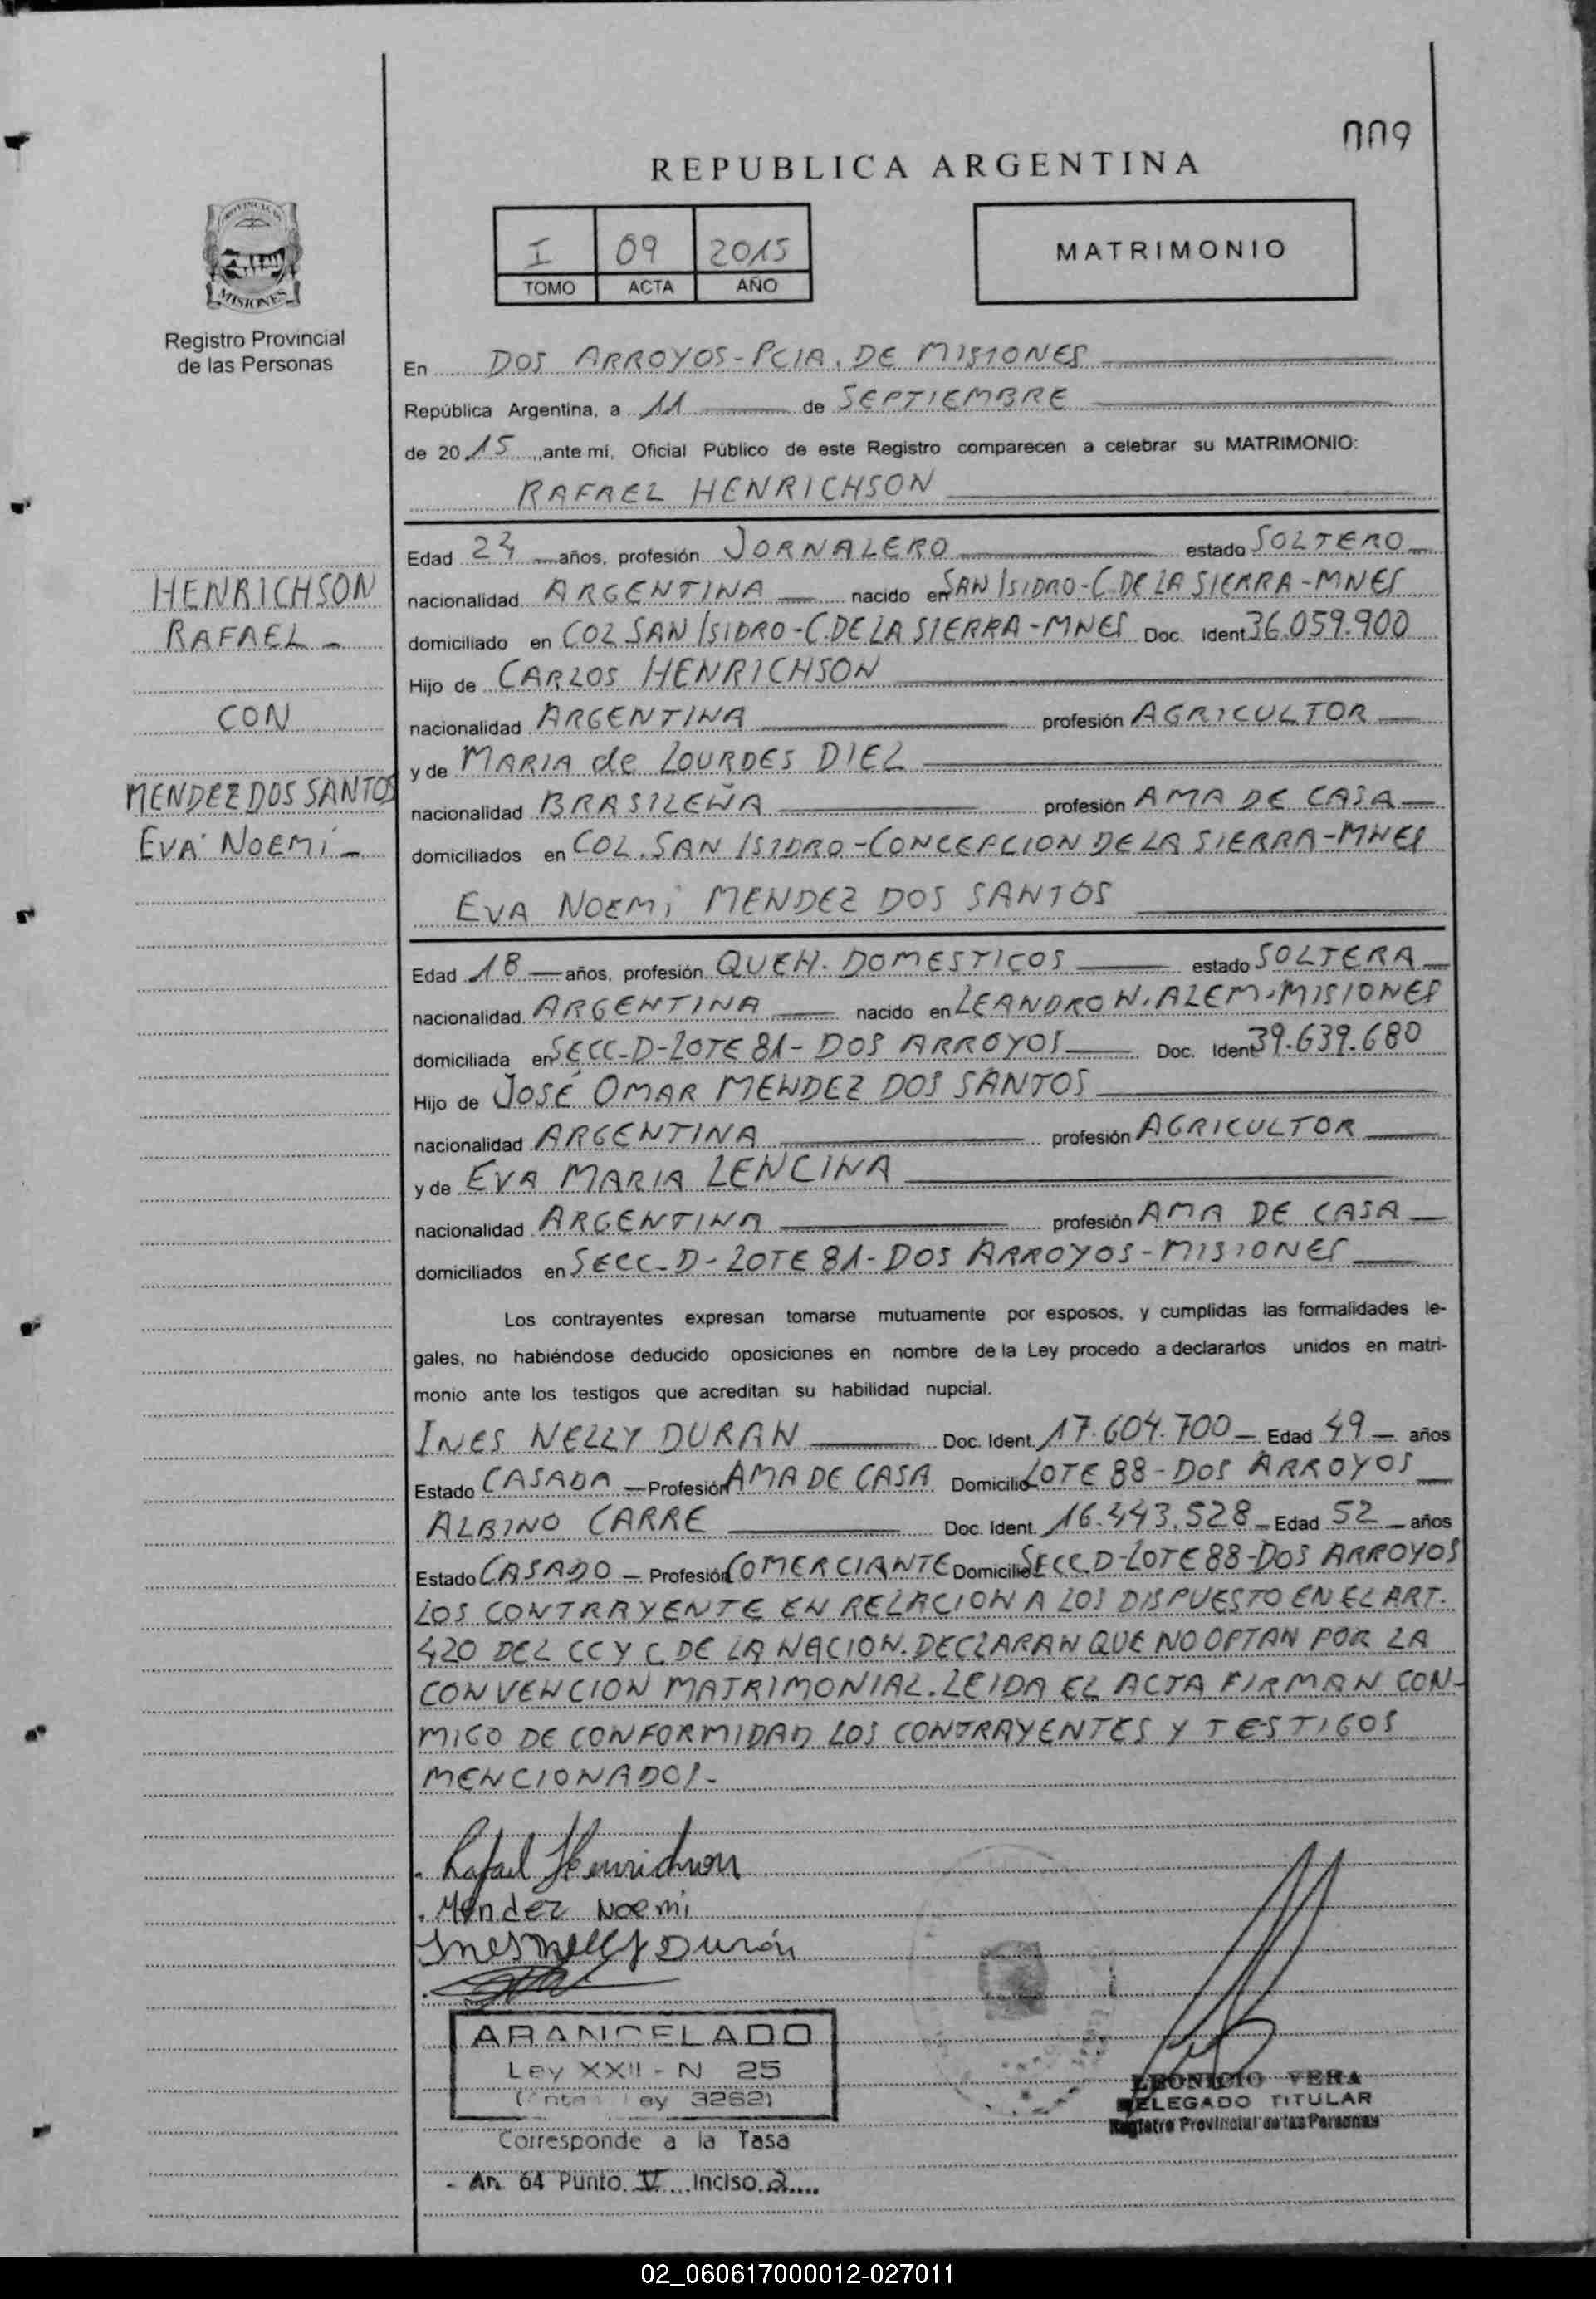 009
REPUBLICA ARGENTINA
PROVINCIA DE
MISIONES
Registro Provincial
de las Personas
I 09 2015
TOMO ACTA AÑO
MATRIMONIO
En DOS ARROYOS-PCIA. DE MISIONES
República Argentina, a 11 de SEPTIEMBRE
de 2015, ante mí, Oficial Público de este Registro comparecen a celebrar su MATRIMONIO:
RAFAEL HENRICHSON
HENRICHSON
RAFAEL -
CON
MENDEZ DOS SANTOS
EVA NOEMI -
Edad 24 años, profesión JORNALERO estado SOLTERO
nacionalidad ARGENTINA nacido en SAN ISIDRO-C.DE LA SIERRA-MNES
domiciliado en COL SAN ISIDRO-C.DE LA SIERRA-MNES Doc. Ident 36.059.900
Hijo de CARLOS HENRICHSON
nacionalidad ARGENTINA profesión AGRICULTOR
y de MARIA de LOURDES DIEL
nacionalidad BRASILEÑA profesión AMA DE CASA
domiciliados en COL. SAN ISIDRO-CONCEPCION DE LA SIERRA-MNES
EVA NOEMi MENDEZ DOS SANTOS
Edad 18 años, profesión QUEH. DOMESTICOS estado SOLTERA
nacionalidad ARGENTINA nacido en LEANDRO N. ALEM-MISIONES
domiciliada en SECC-D-LOTE 81- DOS ARROYOS Doc. Ident 39.639.680
Hijo de JOSÉ OMAR MENDEZ DOS SANTOS
nacionalidad ARGENTINA profesión AGRICULTOR
y de EVA MARIA LENCINA
nacionalidad ARGENTINA profesión AMA DE CASA
domiciliados en SECC-D-LOTE 81-DOS ARROYOS-MISIONES
Los contrayentes expresan tomarse mutuamente por esposos, y cumplidas las formalidades le-
gales, no habiéndose deducido oposiciones en nombre de la Ley procedo a declararlos unidos en matri-
monio ante los testigos que acreditan su habilidad nupcial.
INES NELLY DURAN Doc. Ident. 17.604.700 - Edad 49 - años
Estado CASADA - Profesión AMA DE CASA Domicilio LOTE 88-DOS ARROYOS
ALBINO CARRE Doc. Ident. 16.443.528 - Edad 52 - años
Estado CASADO - Profesión COMERCIANTE Domicilio SECC.D-LOTE 88-DOS ARROYOS
LOS CONTRAYENTE EN RELACION A LOS DISPUESTO EN EL ART.
420 DEL CC Y C DE LA NACION. DECLARAN QUE NO OPTAN POR LA
CONVENCION MATRIMONIAL. LEIDA EL ACTA FIRMAN CON-
MIGO DE CONFORMIDAD LOS CONTRAYENTES Y TESTIGOS
MENCIONADOS-
Rafael Henrichson
Méndez Noemi
Ines Nelly Durán
ARANCELADO
Ley XXII - N 25
(Ante Ley 3262)
Corresponde a la Tasa
- Art. 64 Punto V Inciso 2
LEONICIO VERA
DELEGADO TITULAR
Registro Provincial de las Personas
02_060617000012-027011